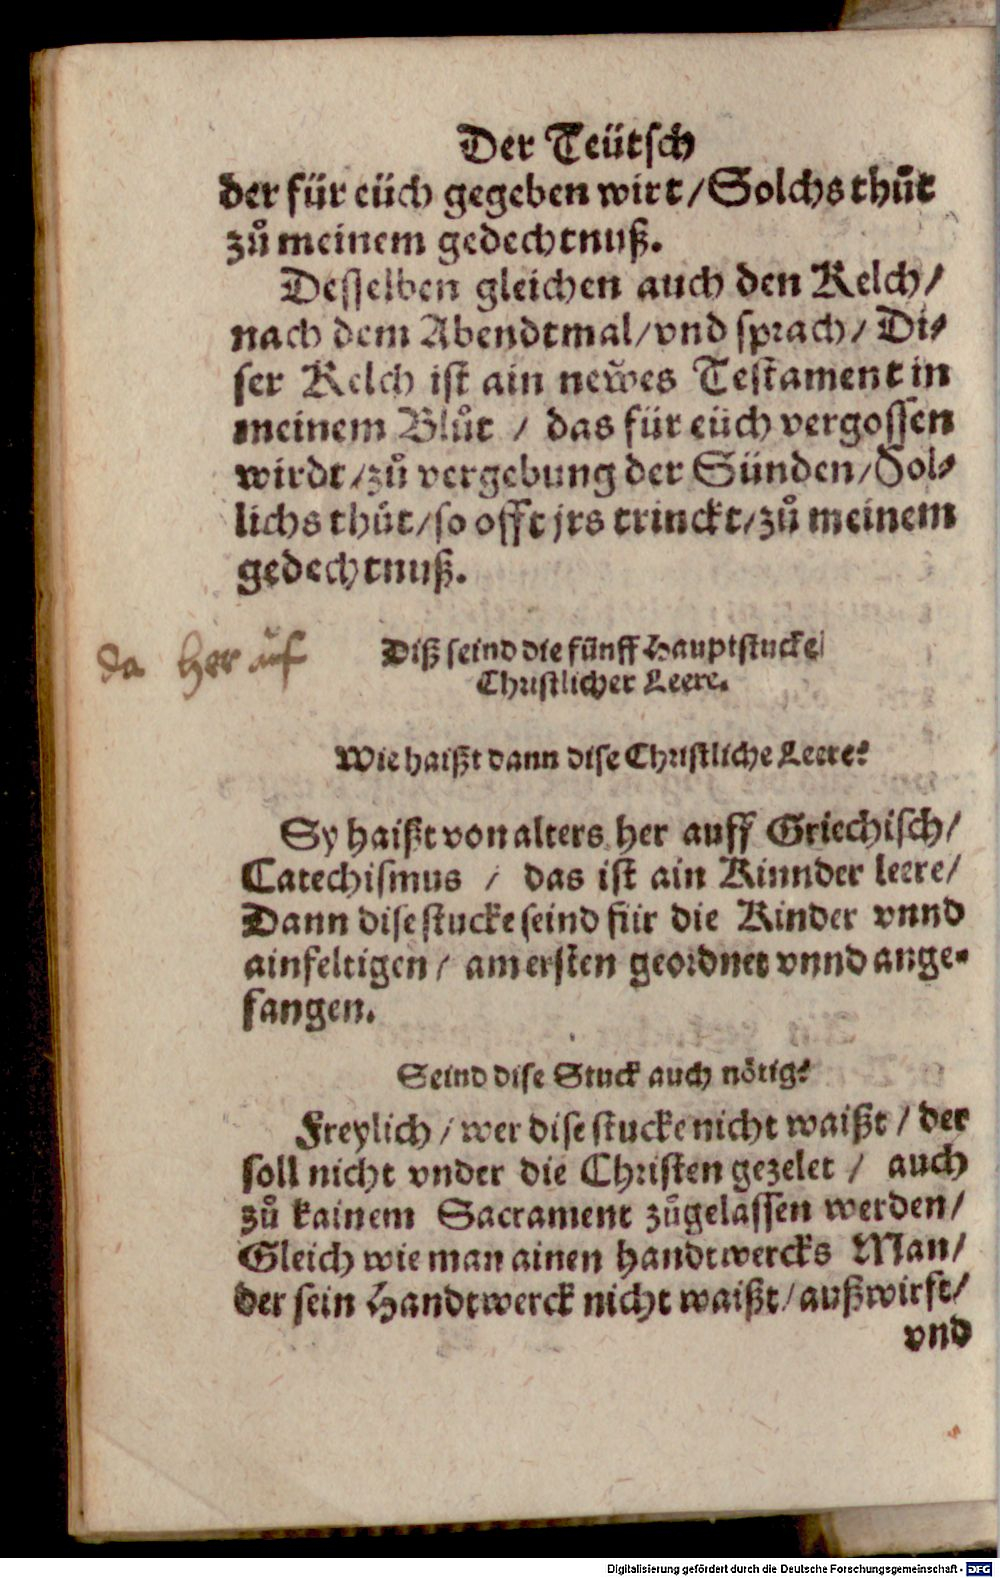 Der Teütsch
der für eüch gegeben wirt / Solchs thůt
zů meinem gedechtnuß.
Desselben gleichen auch den Kelch /
nach dem Abendtmal / vnd sprach / Di⸗
ser Kelch ist ain newes Testament in
meinem Blůt / das für eüch vergossen
wirdt / zů vergebung der Sünden / Sol⸗
lichs thůt / so offt jrs trinckt / zů meinem
gedechtnuß.
da her auf
Diß seind die fünff Hauptstucke
Christlicher Leere.
Wie haißt dann dise Christliche Leere?
Sy haißt von alters her auff Griechisch /
Catechismus / das ist ain Kinnder leere /
Dann dise stucke seind für die Kinder vnnd
ainfeltigen / am ersten geordnet vnnd ange⸗
fangen.
Seind dise Stuck auch nötig?
Freylich / wer dise stucke nicht waißt / der
soll nicht vnder die Christen gezelet / auch
zů kainem Sacrament zůgelassen werden /
Gleich wie man ainen handtwercks Man /
der sein Handtwerck nicht waißt / außwirft /
vnd
Digitalisierung gefördert durch die Deutsche Forschungsgemeinschaft - DFG